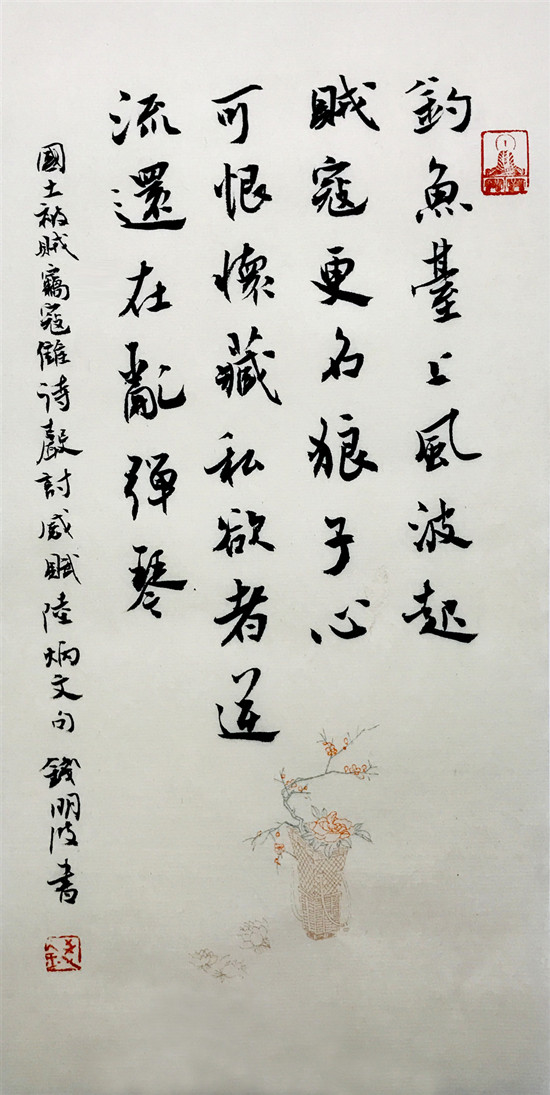 釣魚臺上風波起
賊寇更名狼子心
可恨懷藏私欲者逆
流還在亂彈琴
國土被賊竊寇詩聲討感賦陸炳文句 錢明波書